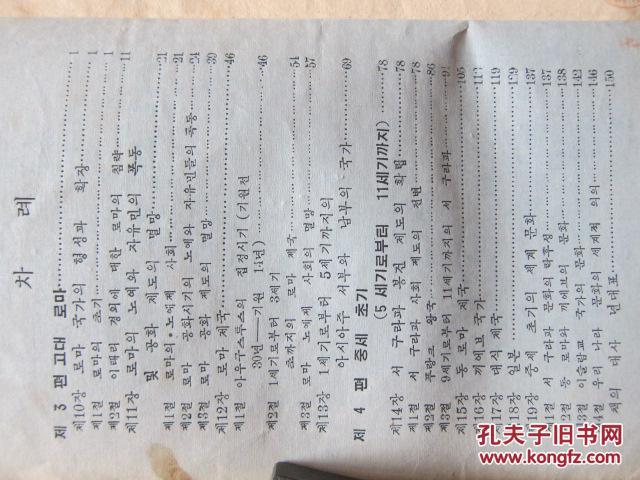 차 례
제 3 편 고대 로마 ……… 1
제10장 로마 국가의 형성과 확장 ……… 1
제1절 로마의 초기 ……… 1
제2절 이태리 경외에 대한 로마의 침략 ……… 11
제11장 로마의 노예와 자유민의 폭동
및 공화 제도의 멸망 ……… 21
제1절 로마의 노예제 사회 ……… 21
제2절 로마 공화시기의 노예와 자유민들의 폭동 ……… 24
제3절 로마 공화 제도의 멸망 ……… 39
제12장 로마 제국 ……… 46
제1절 아우구스투스의 집정시기 (기원전
30년—기원 14년) ……… 46
제2절 1세기로부터 3세기
초까지의 로마 제국 ……… 54
제3절 로마 노예제 사회의 멸망 ……… 57
제13장 1세기로부터 5세기까지의
아시아주 서부와 남부의 국가 ……… 69
제 4 편 중세 초기
(5 세기로부터 11세기까지) ……… 78
제14장 서 구라파 봉건 제도의 확립 ……… 78
제1절 서 구라파 사회 제도의 전변 ……… 78
제2절 후랑크 왕국 ……… 86
제3절 9세기로부터 11세기까지의 서 구라파
제15장 동 로마 제국 ……… 105
제16장 끼예브 국가
제17장 대식 제국 ……… 119
제18장 일본 ……… 129
제19장 중세 초기의 세계 문화 ……… 137
제1절 서 구라파 문화의 락후성 ……… 137
제2절 동 로마와 끼예브의 문화 ……… 138
제3절 이슬람교 국가의 문화 ……… 142
제4절 우리 나라 문화의 세계적 의의 ……… 146
세계 대사 년대표 ……… 150
孔夫子旧书网
www.kongfz.com